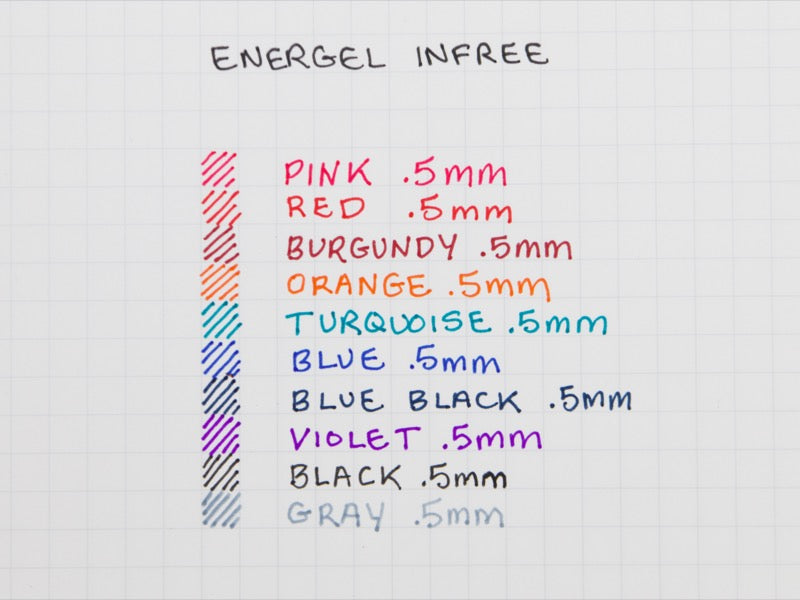 ENERGEL INFREE
PINK .5mm
RED .5mm
BURGUNDY .5mm
ORANGE .5mm
TURQUOISE .5mm
BLUE .5mm
BLUE BLACK .5mm
VIOLET .5mm
BLACK .5mm
GRAY .5mm